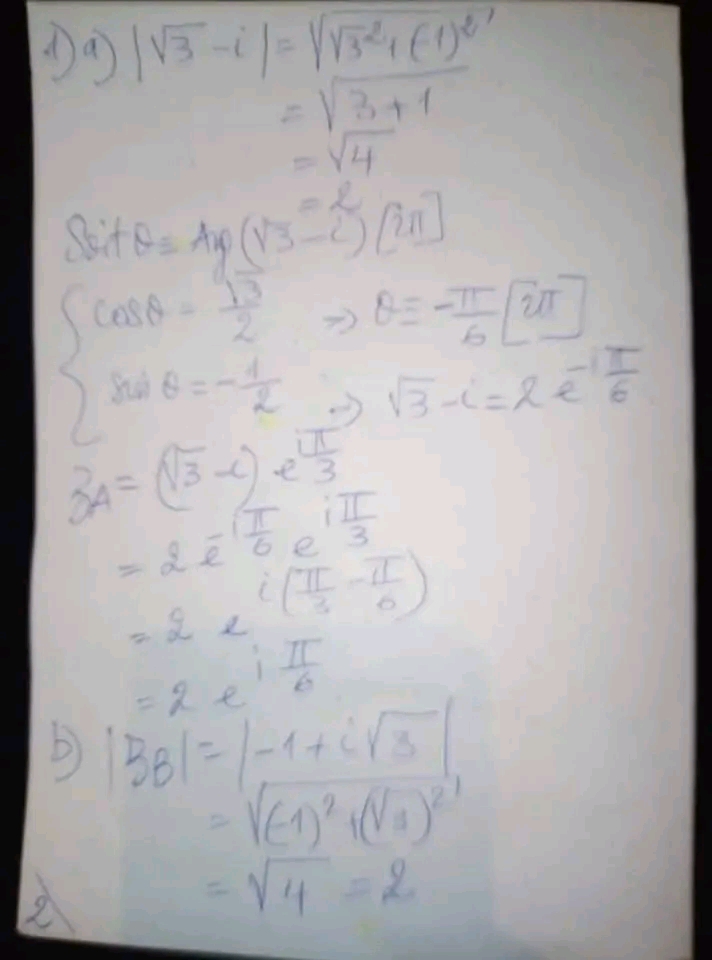 1) a) |√3 - i| = √(√3² + (-1)²)
= √(3+1)
= √4
= 2
Soit θ ≡ Arg(√3 - i) [2π]
{ cosθ = √3/2 → θ ≡ -π/6 [2π]
sin θ = -1/2 → √3 - i = 2 e^(-iπ/6)
z_A = (√3 - i) e^(iπ/3)
= 2 e^(-iπ/6) e^(iπ/3)
= 2 e^(i(π/3 - π/6))
= 2 e^(iπ/6)
b) |z_B| = |-1 + i√3|
= √((-1)² + (√3)²)
= √4 = 2
2)